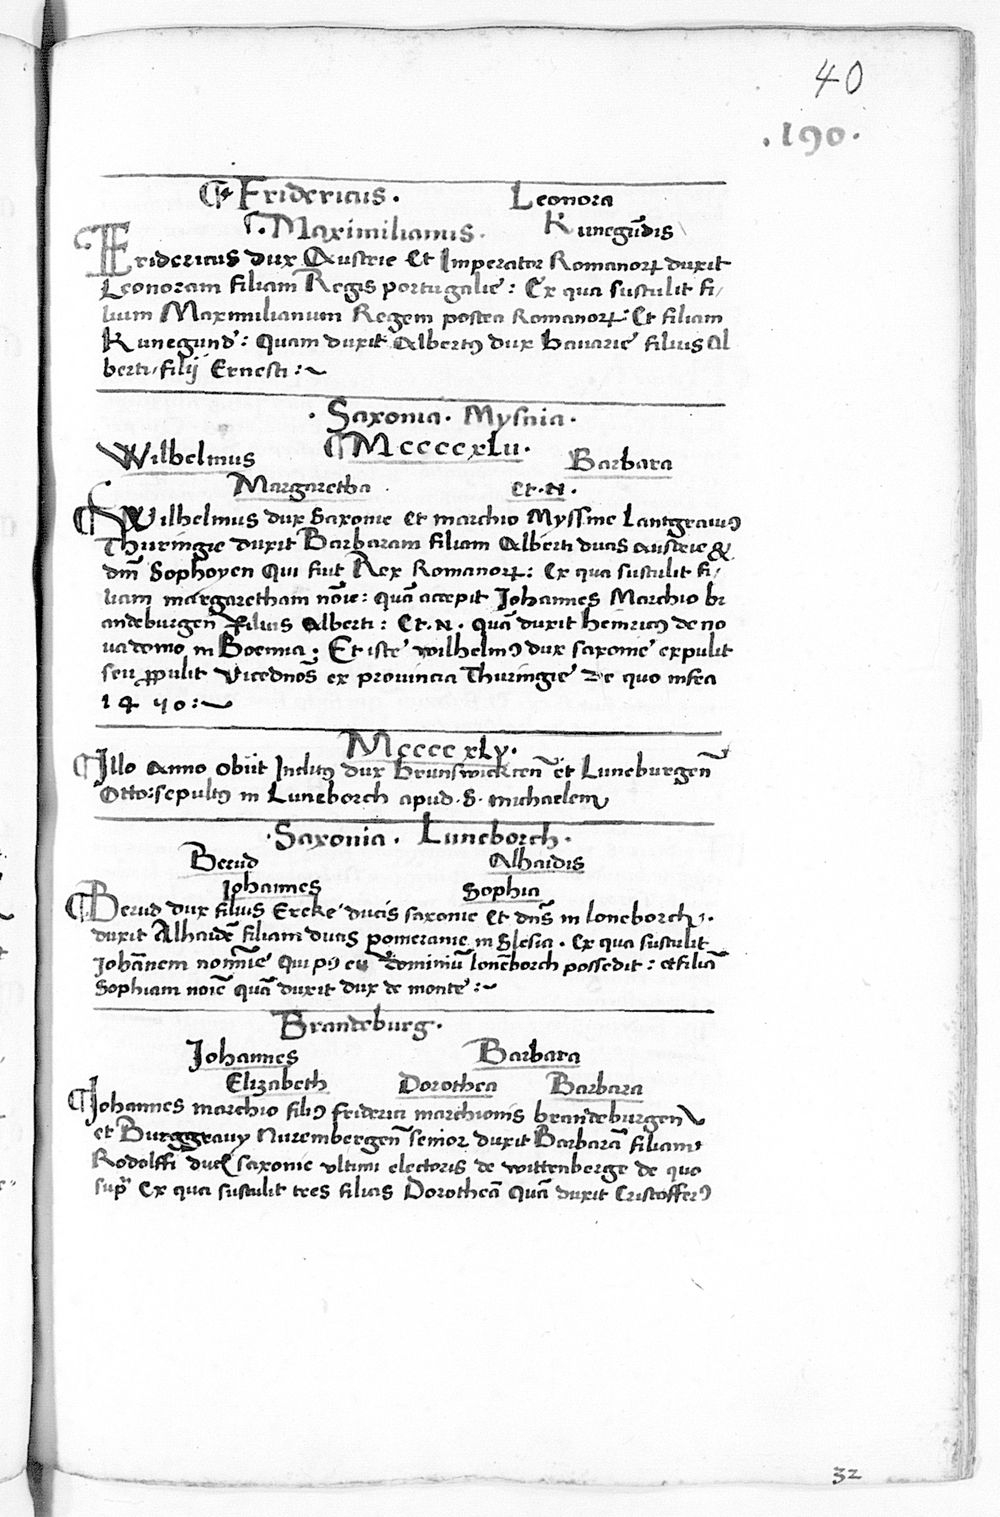 40
.190.
Fridericus. Leonora
Maximilianus. Kunegūdis
Fridericus dux Austrie Et Imperator Romanorꝝ duxit
Leonoram filiam Regis portugalie: Ex qua sustulit fi/
lium Maximilianum Regem postea Romanorꝝ: Et filiam
Kunegund': quam duxit Albertꝰ dux bavarie filius Al
berti filij Ernesti:~
. Saxonia. Mysnia.
Mccccxlii.
Wilhelmus Barbara
Margaretha Et.N.
Wilhelmus dux Saxonie et marchio Myssine Lantgraviꝰ
Thuringie duxit Barbaram filiam Alberti ducis austrie &
dm̄ Sophoyen Qui fuit Rex Romanorꝝ: Ex qua sustulit fi/
liam margaretham nōie: quā accepit Johannes Marchio br
andeburgen filius Alberti: Et.N. quā duxit heinricꝰ de no
va domo in Boemia. Et iste wilhelmꝰ dux saxonie expulit
seu ꝓpulit Vicednōs ex provincia Thuringie De quo infra
14 50:~
Mccccxlv.
Illo Anno obiit Inclitꝰ dux brunswickcen̄ et Luneburgen̄
Otto: sepultꝰ in Luneborch apud .S. michaelem
.Saxonia. Luneborch.
Bernd Alhaidis
Johannes Sophia
Bernd dux filius Ercke ducis saxonie et dn̄s in loneborch:.
duxit Alhaidē filiam ducis pomeranie in Slesia. Ex qua sustulit
Johānem nomīe qui pꝰ eū dominiū lonēborch possedit: et filiā
Sophiam noīe quā duxit dux de monte:~
Brandeburg.
Johannes Barbara
Elizabeth Dorothea Barbara
Johannes marchio filiꝰ friderici marchionis brandeburgen
et Burggravy Nurembergen̄ senior duxit Barbarā filiam
Rodolffi duc saxonie ultimi electoris de wittenberge de quo
sup̄ Ex qua sustulit tres filias Dorotheā quā duxit Cristofferꝰ
32